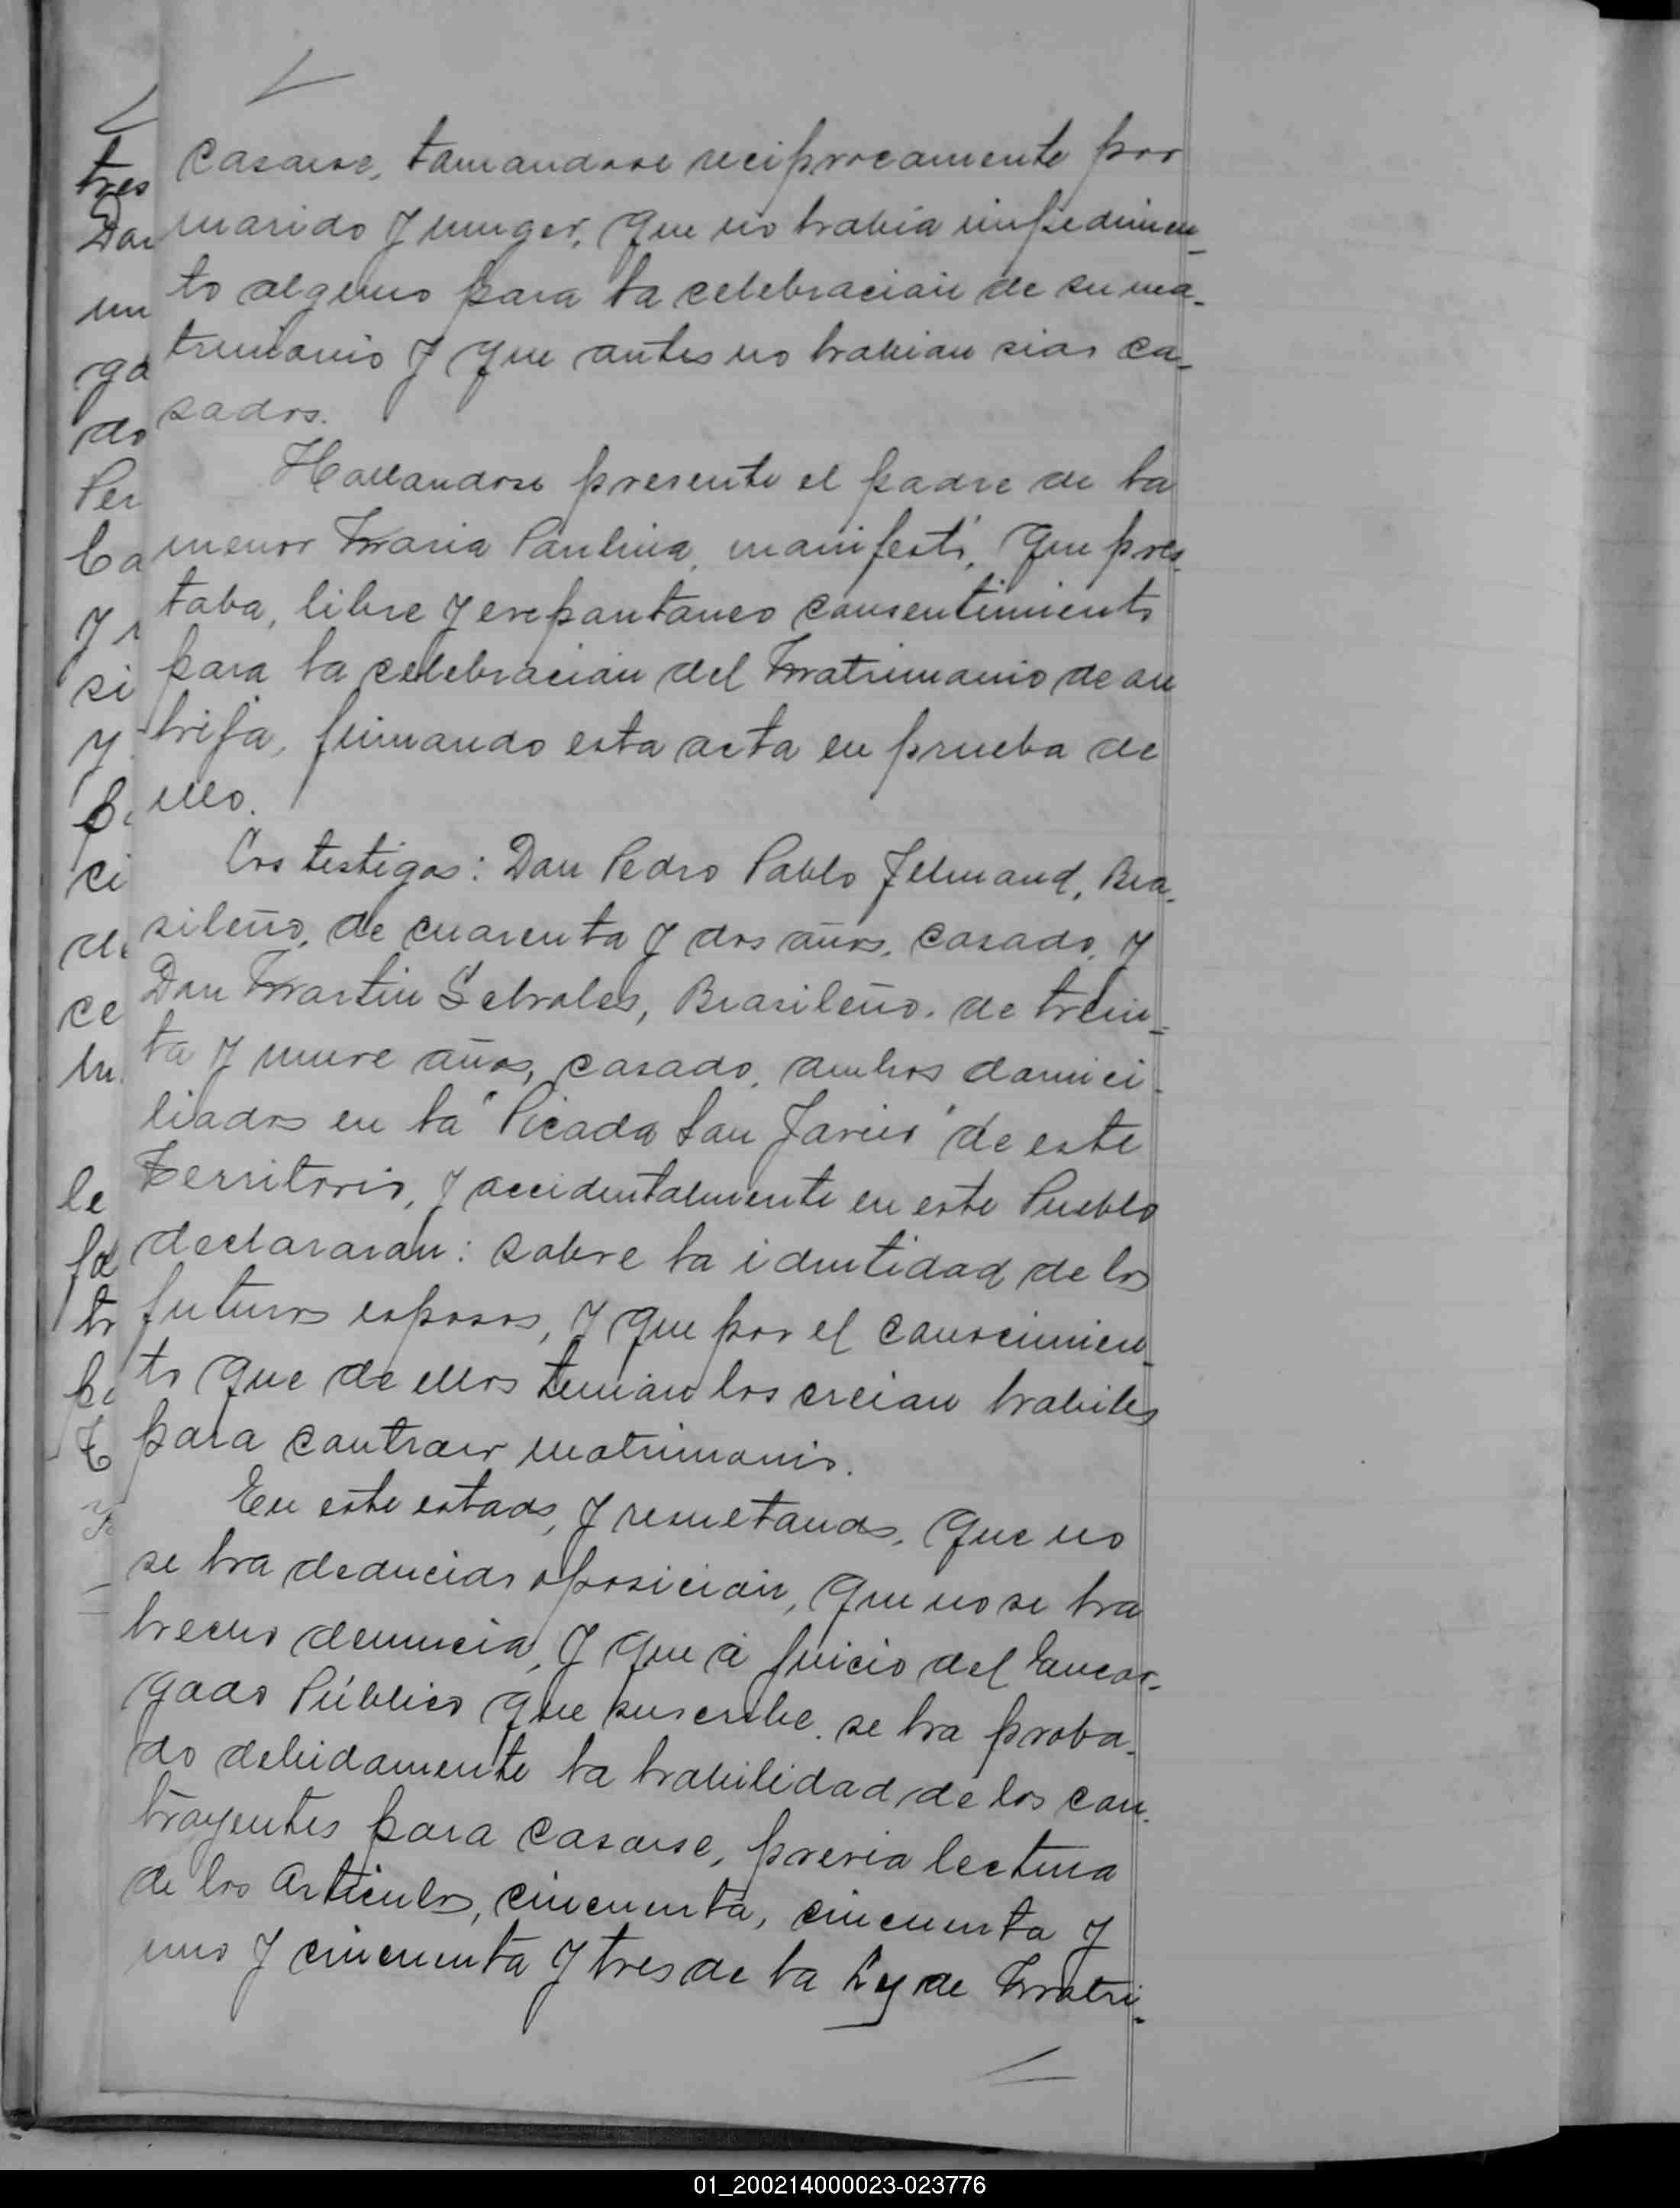 casarse, tomandose reciprocamente por
marido y muger, que no habia impedimen-
to alguno para la celebracion de su ma-
trimonio y que antes no habian sido ca-
sados.
Hallandose presente el padre de la
menor Maria Paulina, manifestó, que pres-
taba, libre y espontaneo consentimiento
para la celebracion del Matrimonio de su
hija, firmando esta acta en prueba de
ello.
Los testigos: Don Pedro Pablo, Bra-
sileño, de cuarenta y dos años, casado, y
Don Martin, Brasileño, de trein-
ta y nueve años, casado, ambos domici-
liados en la "Picada San Javier" de este
Territorio, y accidentalmente en este Pueblo
declararan: sobre la identidad de los
futuros esposos, y que por el conocimien-
to que de ellos tenian los creian habiles
para contraer matrimonio.
En este estado, y resultando, que no
se ha deducido oposicion, que no se ha
hecho denuncia, y que á juicio del Encar-
gado Público que suscribe, se ha proba-
do debidamente la habilidad de los con-
trayentes para casarse, previa lectura
de los Articulos, cincuenta, cincuenta y
uno y cincuenta y tres de la Ley de Matri-
tres
Don
un
ga
do
Per
Ca
y
si
y
ci
ce
le
fa
tr
01_200214000023-023776